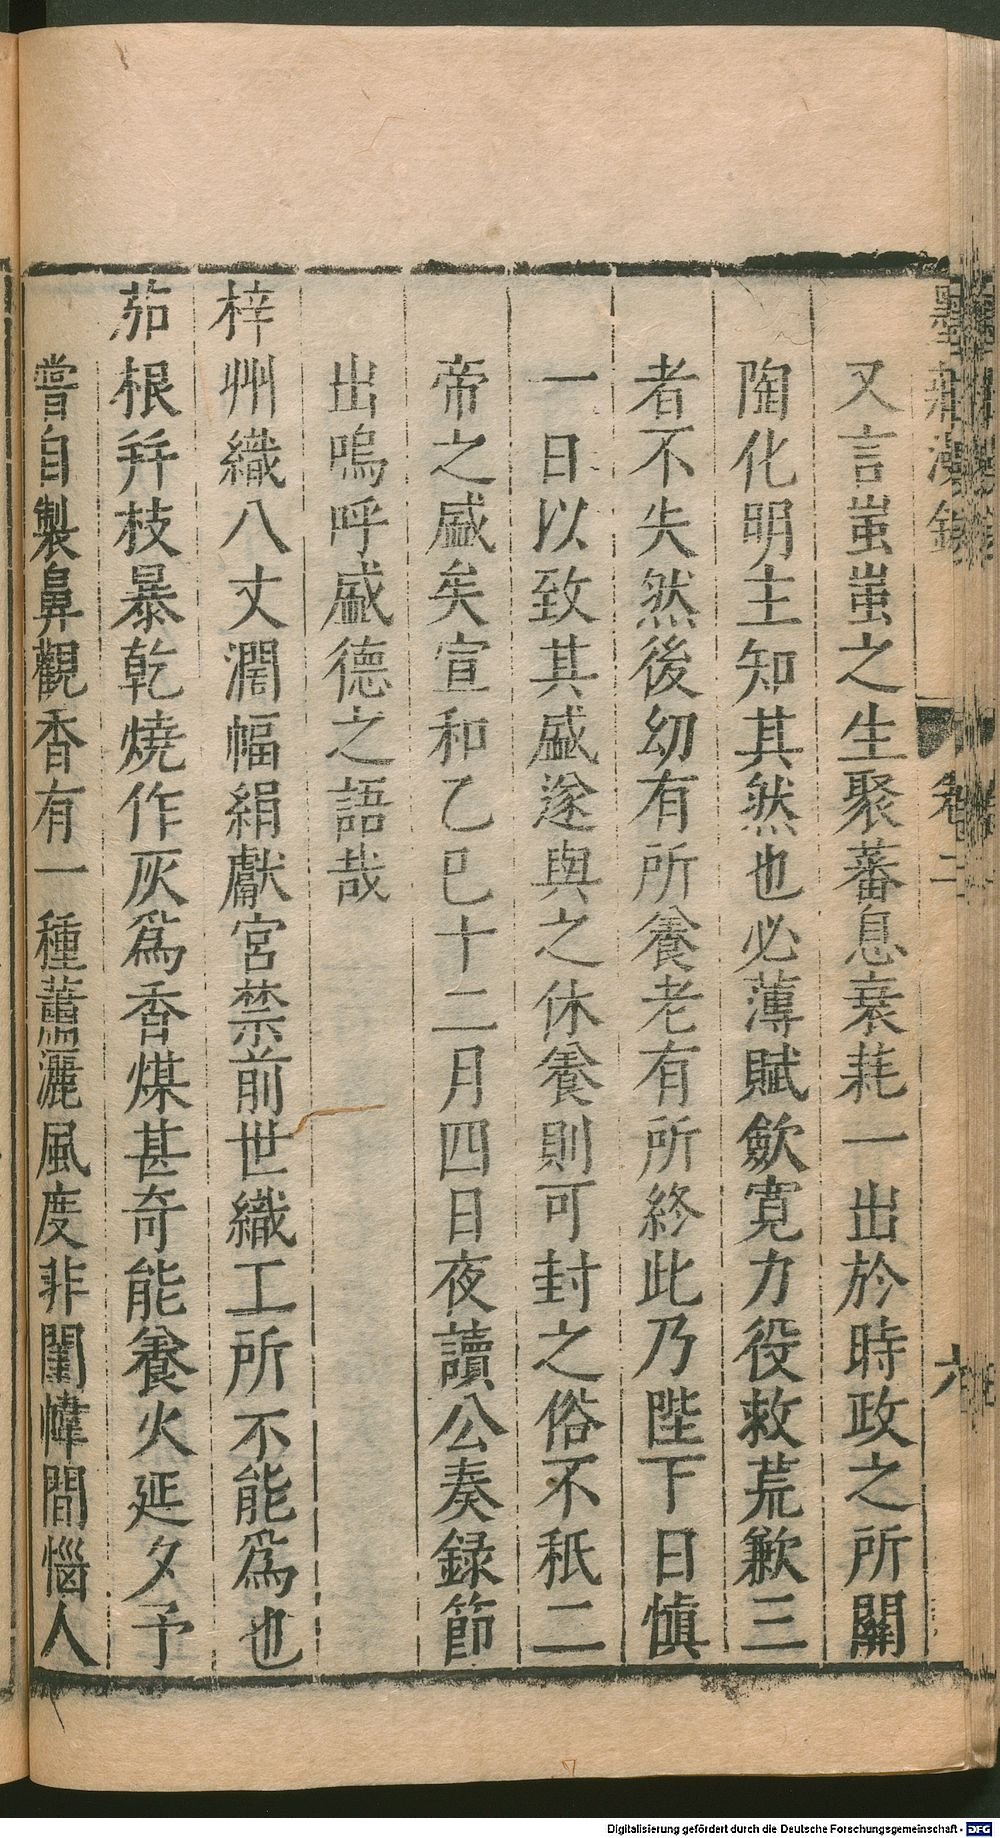 墨莊漫録 卷二 六
又言蚩蚩之生聚蕃息衰耗一出於時政之所關
陶化明主知其然也必薄賦斂寛力役救荒歉三
者不失然後幼有所養老有所終此乃陛下日慎
一日以致其盛遂與之休養則可封之俗不秪二
帝之盛矣宣和乙巳十二月四日夜讀公奏録節
出嗚呼盛德之語哉
梓州織八丈濶幅絹獻宮禁前世織工所不能爲也
茄根幷枝暴乾燒作灰爲香煤甚奇能養火延夕予
嘗自製鼻觀香有一種薰灑風度非閨幃間惱人
Digitalisierung gefördert durch die Deutsche Forschungsgemeinschaft - DFG